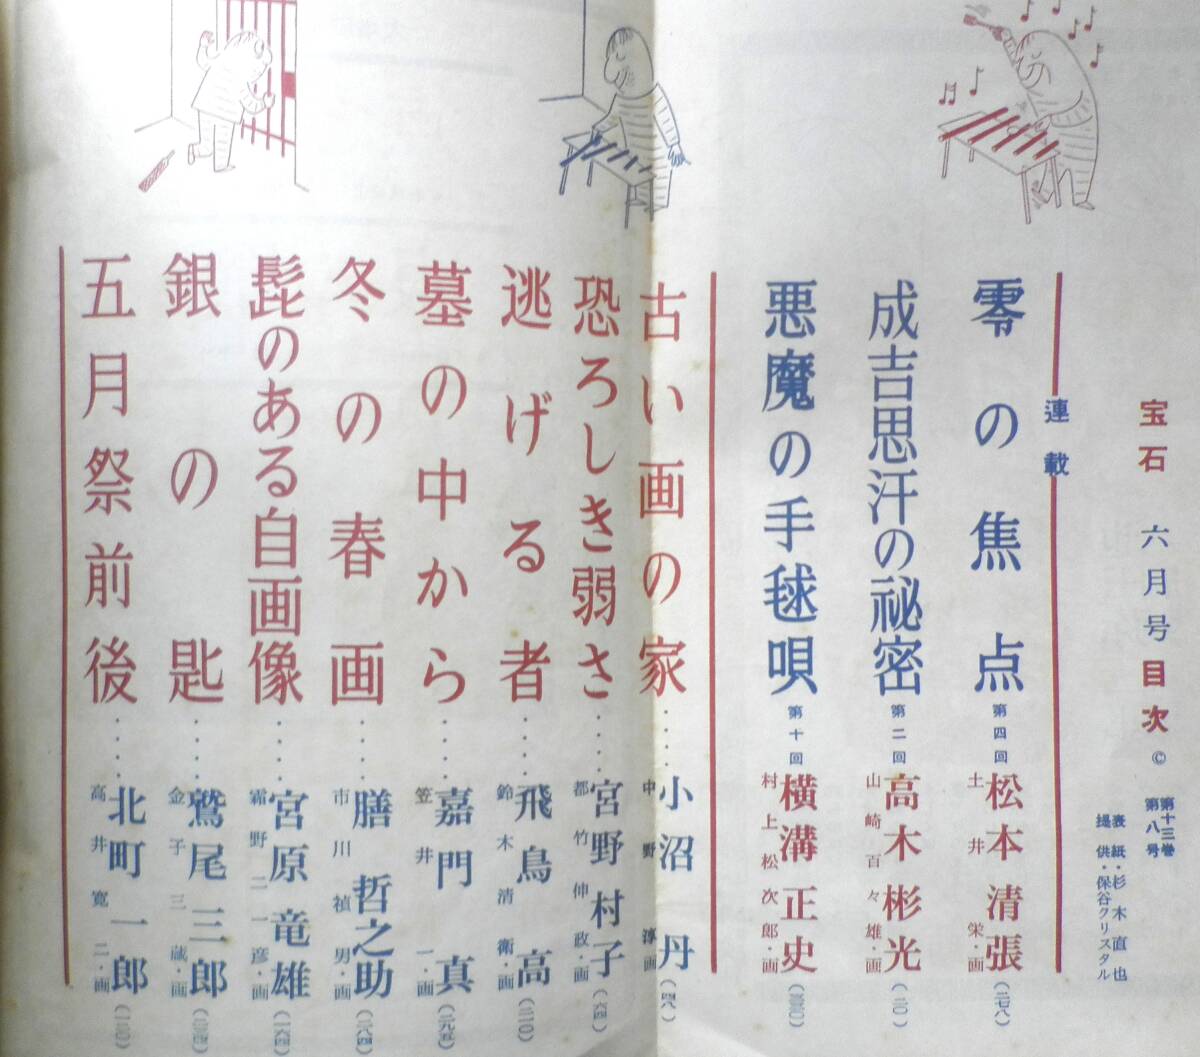 宝石 六月号 目次 ©
第十三巻
第八号
表紙・杉木直也
提供・保谷クリスタル
連載
零の焦点 第四回 松本清張 (二七八)
土井栄・画
成吉思汗の祕密 第二回 高木彬光 (二〇)
山崎百々雄・画
悪魔の手毬唄 第十回 横溝正史
村上松次郎・画
古い画の家……小沼丹 (四八)
中野淳画
恐ろしき弱さ……宮野村子 (六四)
都竹伸政・画
逃げる者……飛鳥高 (二一〇)
鈴木清衛・画
墓の中から……嘉門真 (二九五)
笠井一・画
冬の春画……膳哲之助 (二八四)
市川禎男・画
髭のある自画像……宮原竜雄 (一六四)
霜野二一彦・画
銀の匙……鷲尾三郎
金子三蔵・画
五月祭前後……北町一郎 (一二〇)
高井寛二・画